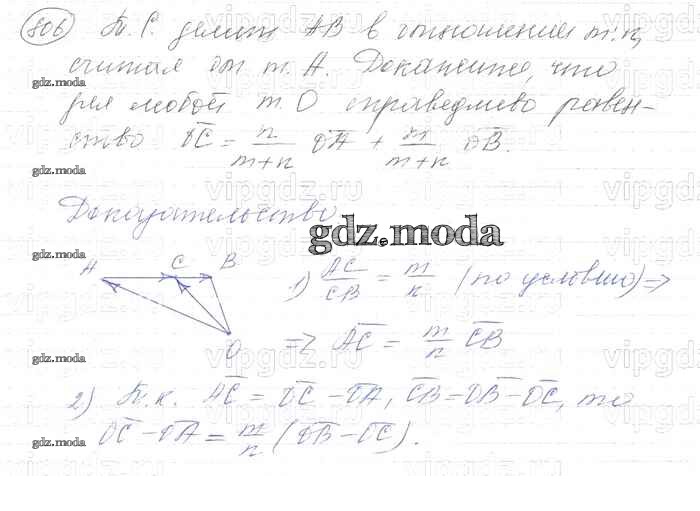 806 Т. С делит AB в отношении m:n,
считая от т. A. Докажите, что
для любой т. O справедливо равен-
ство OC = n/(m+n) OA + m/(m+n) OB.
gdz.moda
Доказательство
gdz.moda
A C B
O
1) AC/CB = m/n (по условию) =>
=> AC = m/n CB
gdz.moda
2) Т.к. AC = OC - OA, CB = OB - OC, то
OC - OA = m/n (OB - OC).
gdz.moda
gdz.moda
vipgdz.ru